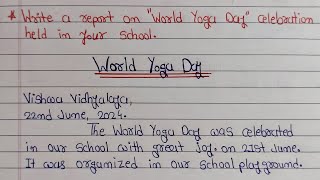 * Write a report on "World Yoga Day" celebration
held in your school.
World Yoga Day
Vishwa Vidhyalaya,
22nd June, 2024.
The World Yoga Day was celebrated
in our school with great joy on 21st June.
It was organized in our school playground.